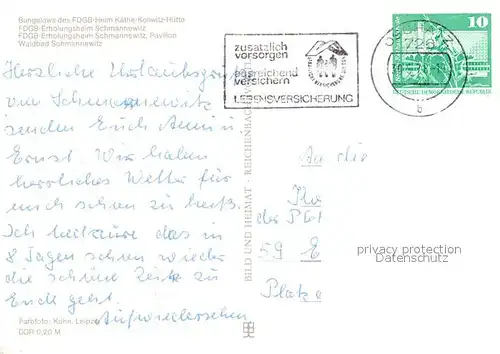 Bungalows des FDGB-Heim Käthe-Kollwitz-Hütte
FDGB-Erholungsheim Schmannewitz
FDGB-Erholungsheim Schmannewitz, Pavillon
Waldbad Schmannewitz
Herzliche Urlaubsgrüße
von Schmannewitz
senden Euch Anni u
Ernst. Wir haben
herrliches Wetter für
mich schon zu heiß.
Ich bedaure das in
8 Tagen schon wieder
die schöne Zeit zu
Ende geht.
Aufwiedersehen
Farbfoto: Kühn, Leipzig
DDR 0,20 M
BILD UND HEIMAT · REICHENBACH
zusätzlich
vorsorgen
ausreichend
versichern
LEBENSVERSICHERUNG
OSCHATZ
726
10
DEUTSCHE DEMOKRATISCHE REPUBLIK
An die
der
59 E
privacy protection
Datenschutz